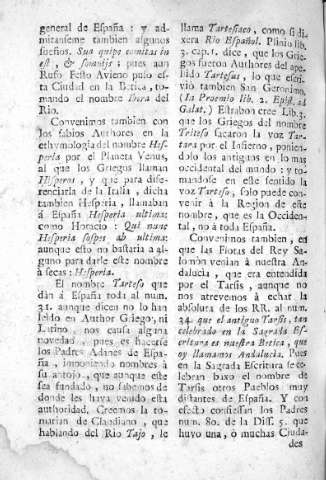 general de España : y ad-
mitansenie tambien algunos
sueños. Sua quipe comitas in
est , & somnijs : pues aun
Rufo Festo Avieno puso es-
ta Ciudad en la Betica , to-
mando el nombre Ibera del
Rio.
Convenimos tambien con
los sabios Authores en la
ethymologia del nombre Hes-
peria por el Planeta Venus,
al que los Griegos llaman
Hesperos , y que para dife-
renciarla de la Italia , dicha
tambien Hesperia , llamaban
á España Hesperia ultima:
como Horacio : Qui nunc
Hesperia sospes ab ultima:
aunque esto no bastaria á al-
guno para darle este nombre
á secas : Hesperia.
El nombre Tarteso que
dán á España toda al num.
31. aunque dicen no lo han
leido en Author Griego, ni
Latino , nos causa alguna
novedad , pues es hacerse
los Padres Adanes de Espa-
ña , imponiendo nombres á
su antojo , que aunque este
sea fundado , no sabemos de
donde les haya venido esta
authoridad. Creemos la to-
marian de Claudiano , que
hablando del Rio Tajo , le
llama Tartesiaco , como si di-
xera Rio Español. Plinio lib.
3. cap. 1. dice , que los Grie-
gos fueron Authores del ape-
llido Tartesus , lo que escri-
vió tambien San Geronimo,
(In Proemio lib. 2. Epist. ad
Galat.) Estrabon cree Lib. 3.
que los Griegos del nombre
Triteso sacaron la voz Tar-
tara por el Infierno , ponien-
dolo los antiguos en lo mas
occidental del mundo : y to-
mandose en este sentido la
voz Tarteso , solo puede con-
venir á la Region de este
nombre , que es la Occiden-
tal , no á toda España.
Convenimos tambien , en
que las Flotas del Rey Sa-
lomón venian á nuestra An-
dalucia , que era entendida
por el Tarsis , aunque no
nos atrevemos á echar la
absoluta de los RR. al num.
34. que el antiguo Tarsis, tan
celebrado en la Sagrada Es-
critura es nuestra Betica , que
oy llamamos Andalucia. Pues
en la Sagrada Escritura se ce-
lebran baxo el nombre de
Tarsis otros Pueblos muy
distantes de España. Y con
efecto confiessan los Padres
num. 80. de la Diss. 5. que
huvo una, ó muchas Ciuda-
des